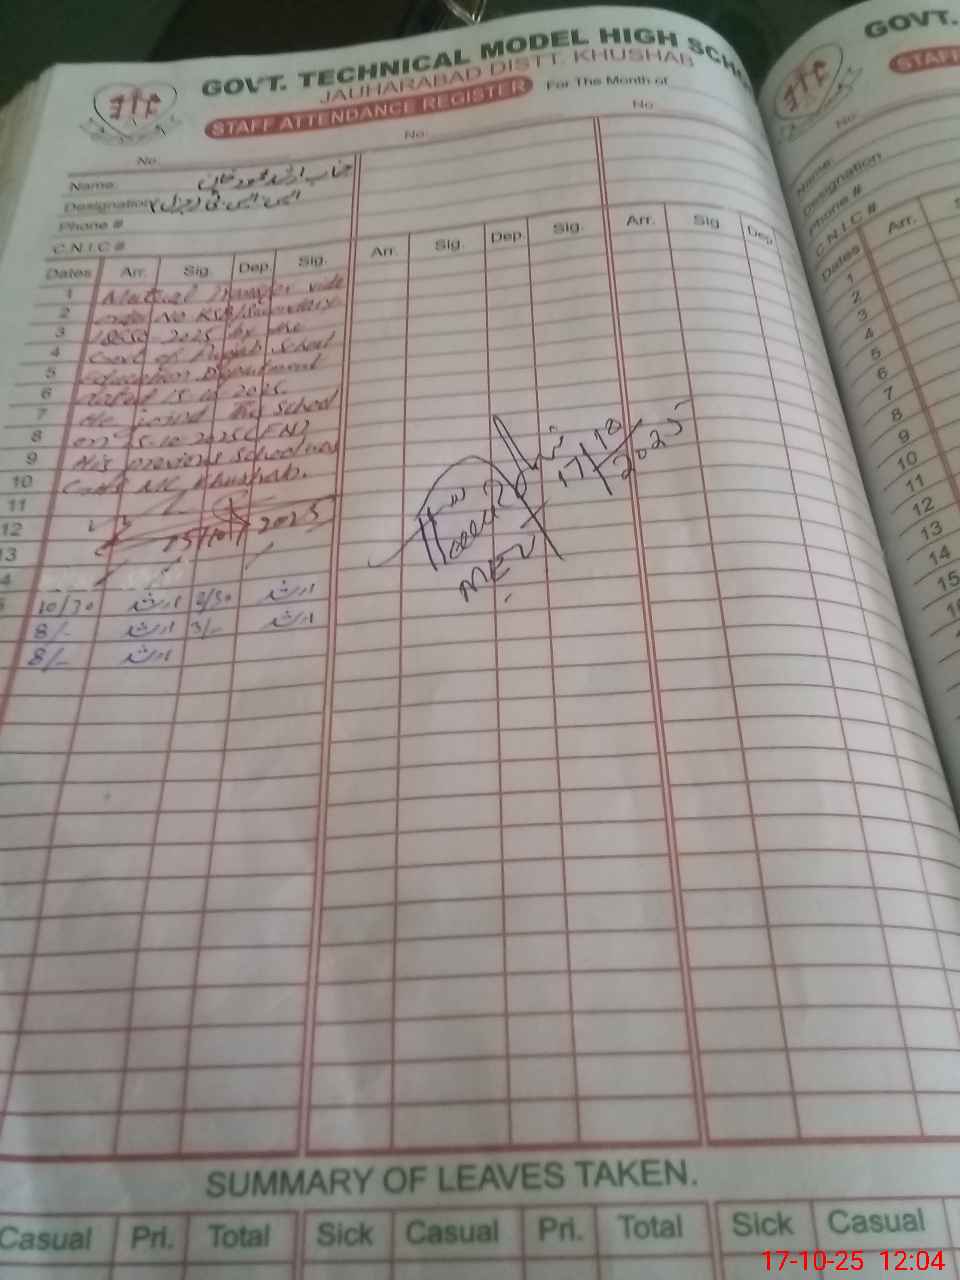 GOVT. TECHNICAL MODEL HIGH SCHO
JAUHARABAD DISTT. KHUSHAB
STAFF ATTENDANCE REGISTER For The Month of
No. No. No.
Name: جناب ارشد محمود خان
Designation ایس ایس ٹی جنرل
Phone #
C.N.I.C #
Dates Arr. Sig. Dep. Sig. Arr. Sig. Dep. Sig. Arr. Sig Dep
1 Mutual Transfer vide
2 order No
3 2025 by the
4 Govt of Punjab School
5 Education Department
6 dated 15.10.2025.
7 He joined The School
8 on 15.10.2025 (F.N)
9 His previous school was
10 Khushab.
11
12 15/10/2025
13
4
5 10/30 ارشد 2/30 ارشد
8/- ارشد 3/- ارشد
8/- ارشد
MEZ
17/10
2025
SUMMARY OF LEAVES TAKEN.
Casual Pri. Total Sick Casual Pri. Total Sick Casual
GOVT.
STAFF
No.
Name:
Designation
Phone #
C.N.I.C #
Dates Arr. S
1
2
3
4
5
6
7
8
9
10
11
12
13
14
15
17-10-25 12:04